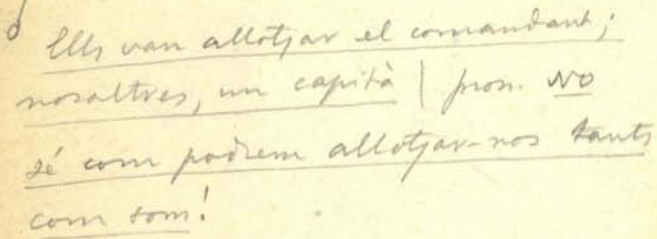 Ells van allotjar el comandant;
nosaltres, un capità | pron. No
sé com podrem allotjar-nos tants
com som!